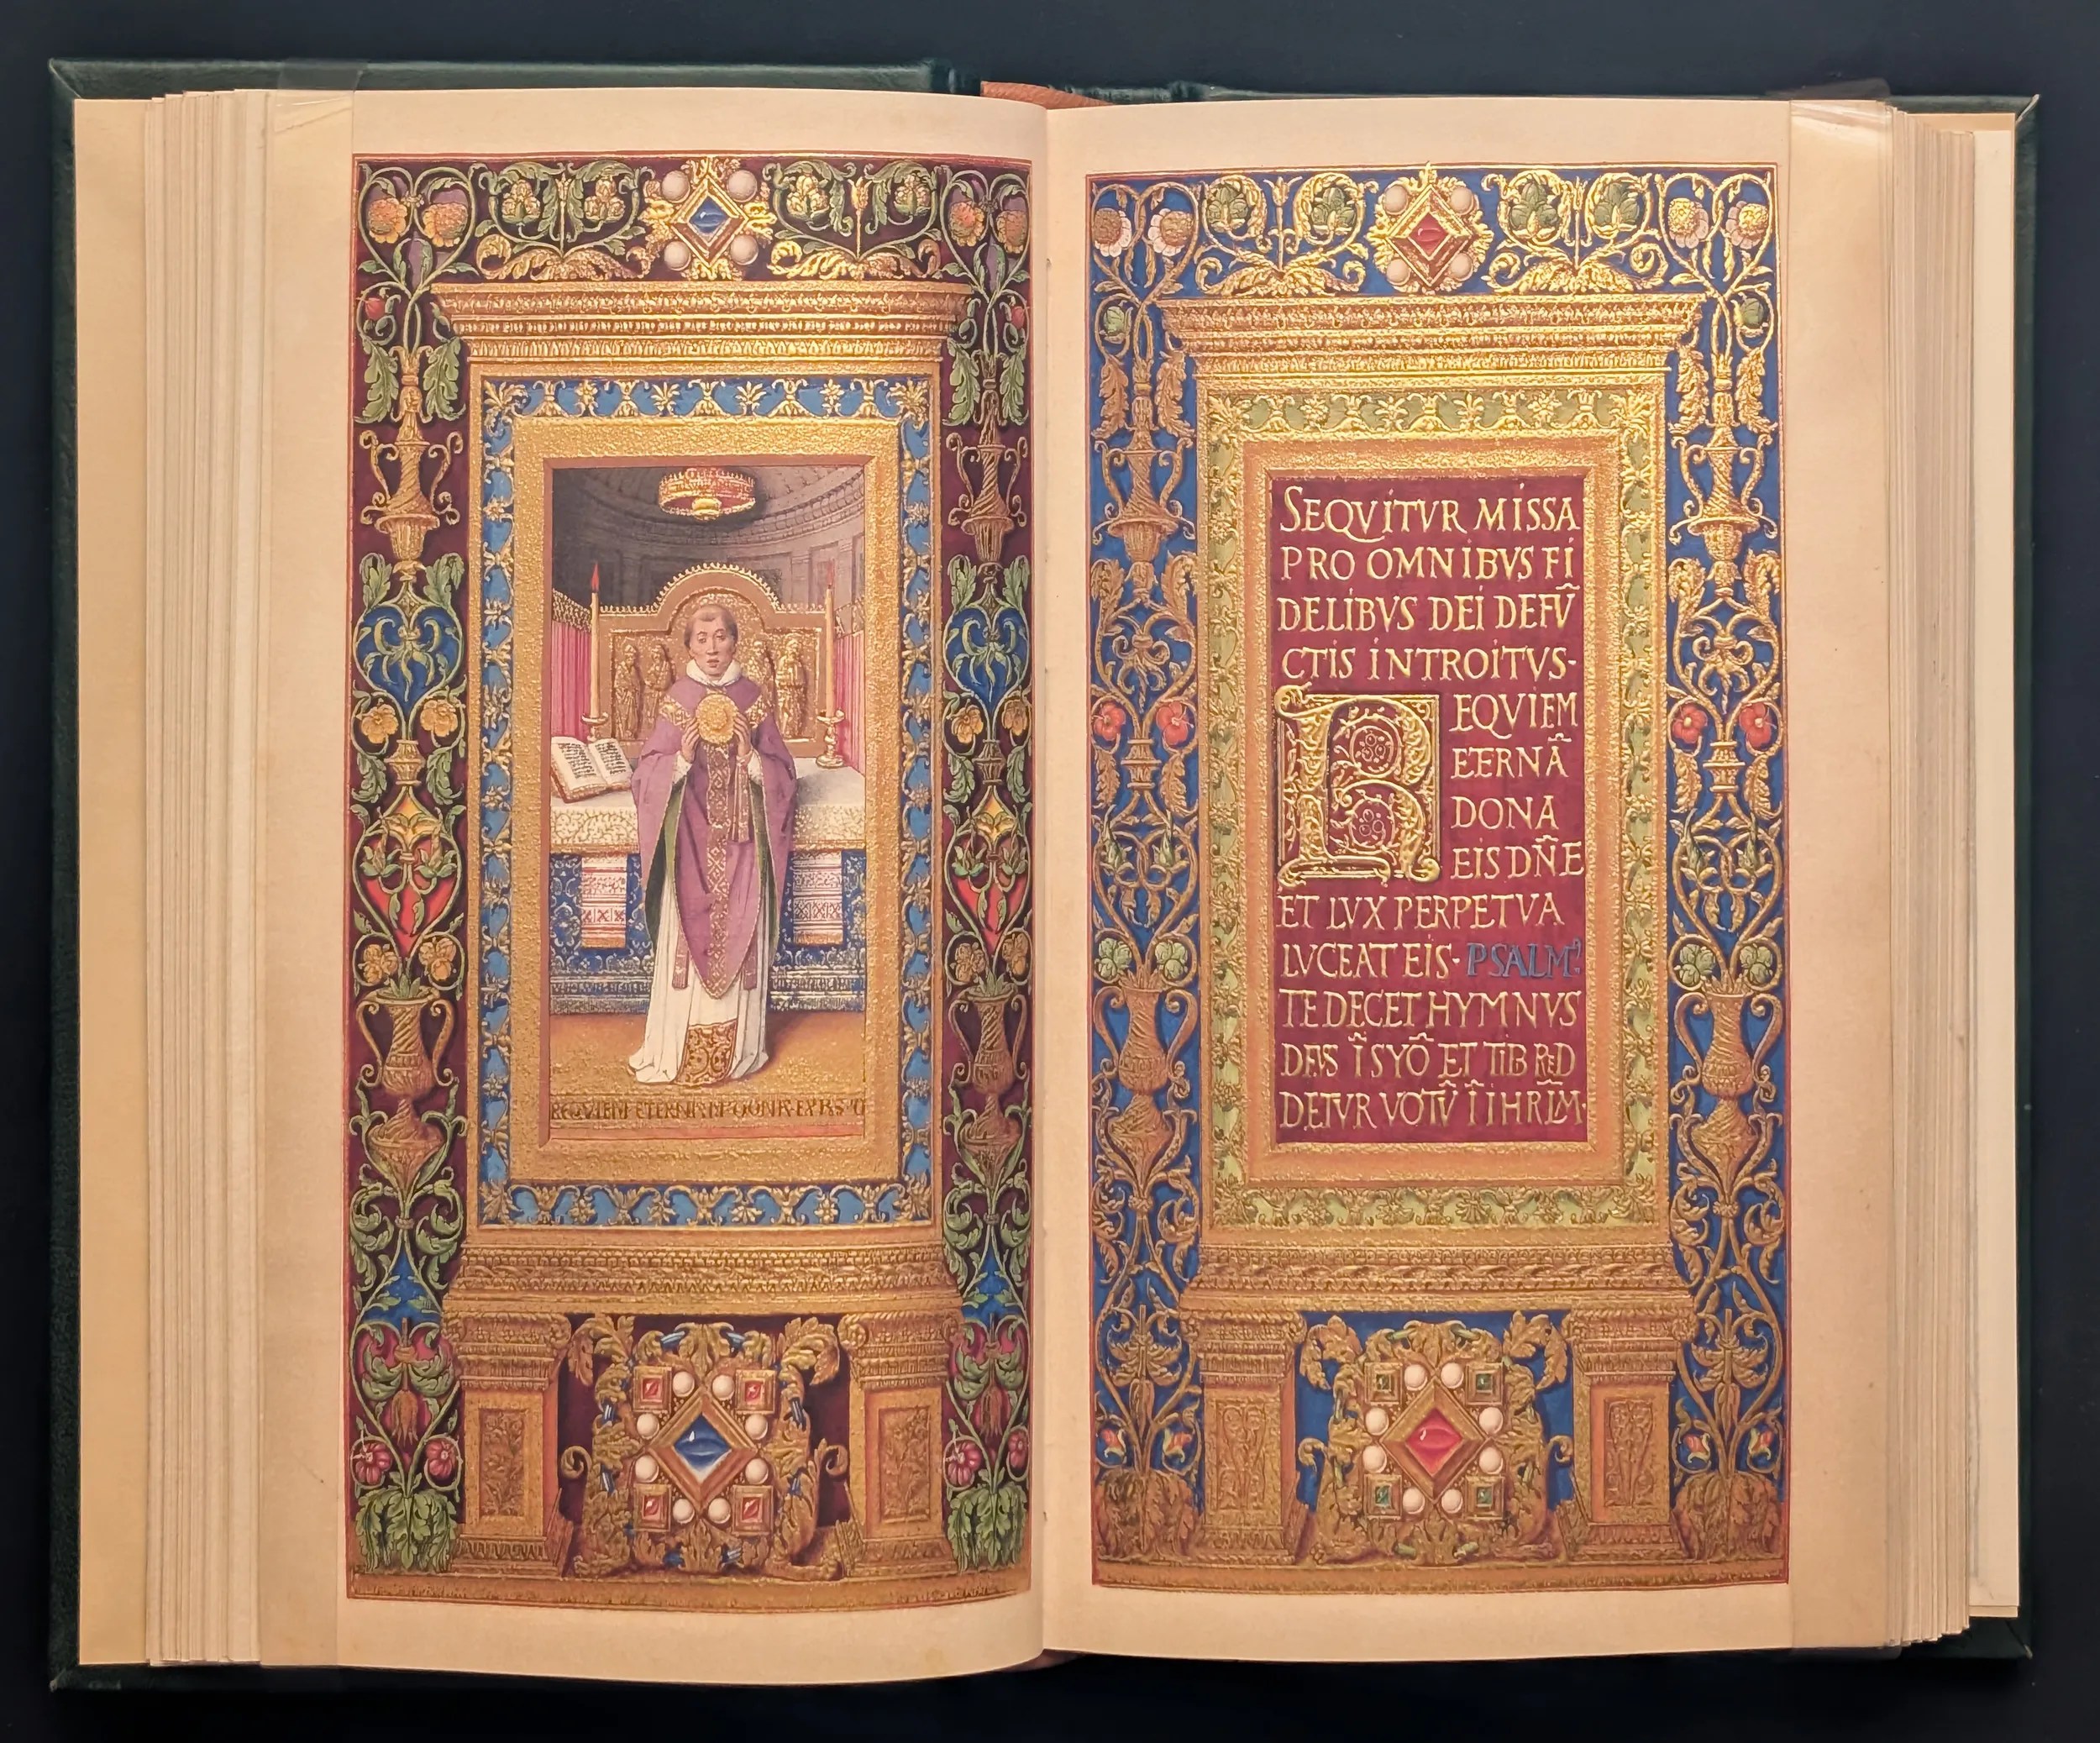 REQVIEM ETERNAM DONA
SEQVITVR MISSA
PRO OMNIBVS FI
DELIBVS DEI DEFV̄
CTIS INTROITVS-
REQVIEM
EERNĀ
DONA
EIS DN̄E
ET LVX PERPETVA
LVCEAT EIS· PSALMꝰ
TE DECET HYMNVS
DEVS Ī SYŌ ET TIB RED
DETVR VOTV̄ Ī IHRL̄M·